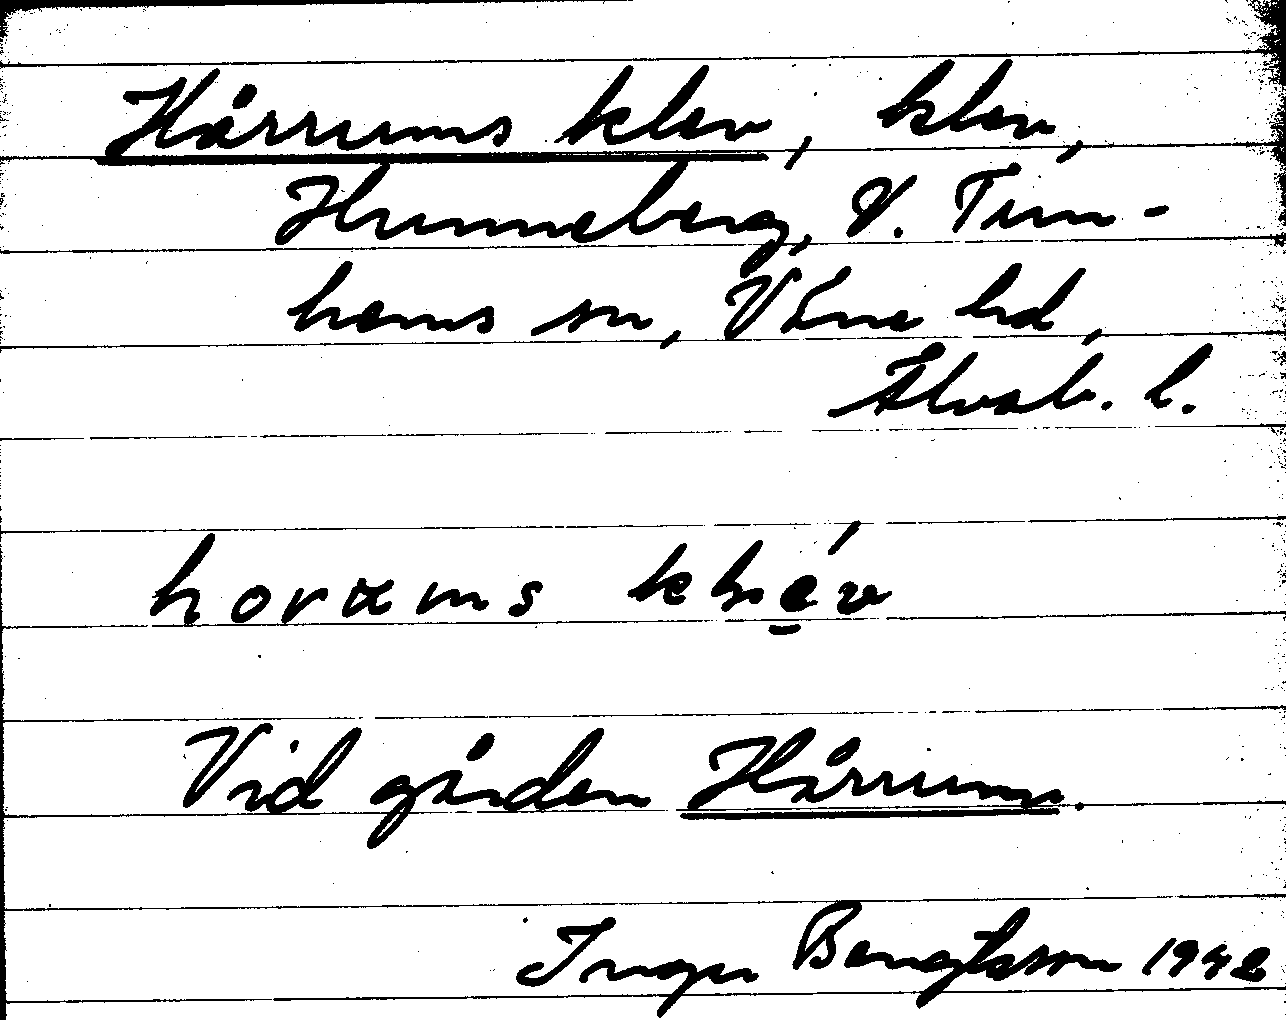 Hårrums klev, klev,
Hunneberg, V. Tun-
hems sn, Väne hd,
Älvsb. l.
Vid gården Hårrum.
Inger Bengtsson 1942